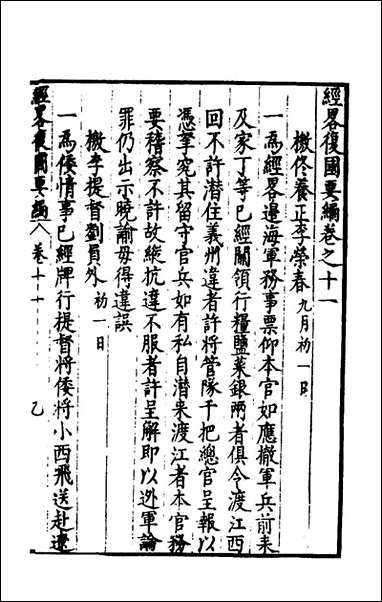 經畧復國要編卷之十一
檄佟養正李榮春 九月初一日
一爲經畧邊海軍務事票仰本官如應撤軍兵前来
及家丁等已經關領行糧鹽菜銀兩者俱令渡江西
回不許潜住義州違者許將管隊千把總官呈報以
憑拏究其留守官兵如有私自潜来渡江者本官務
要稽察不許故縱抗違不服者許呈解即以逃軍論
罪仍出示曉諭毋得違誤
檄李提督劉員外 初一日
一爲倭情事已經牌行提督將倭將小西飛送赴遼
經畧復國要編 卷十一